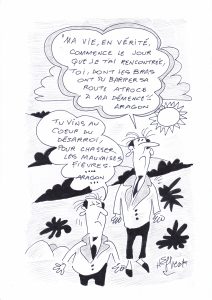 "MA VIE, EN VÉRITÉ,
COMMENCE LE JOUR
QUE JE T'AI RENCONTRÉE,
TOI, DONT LES BRAS
ONT SU BARRER SA
ROUTE ATROCE
À MA DÉMENCE"...
ARAGON
TU VINS AU
COEUR DU
DÉSARROI
POUR CHASSER
LES MAUVAISES
FIÈVRES....
ARAGON